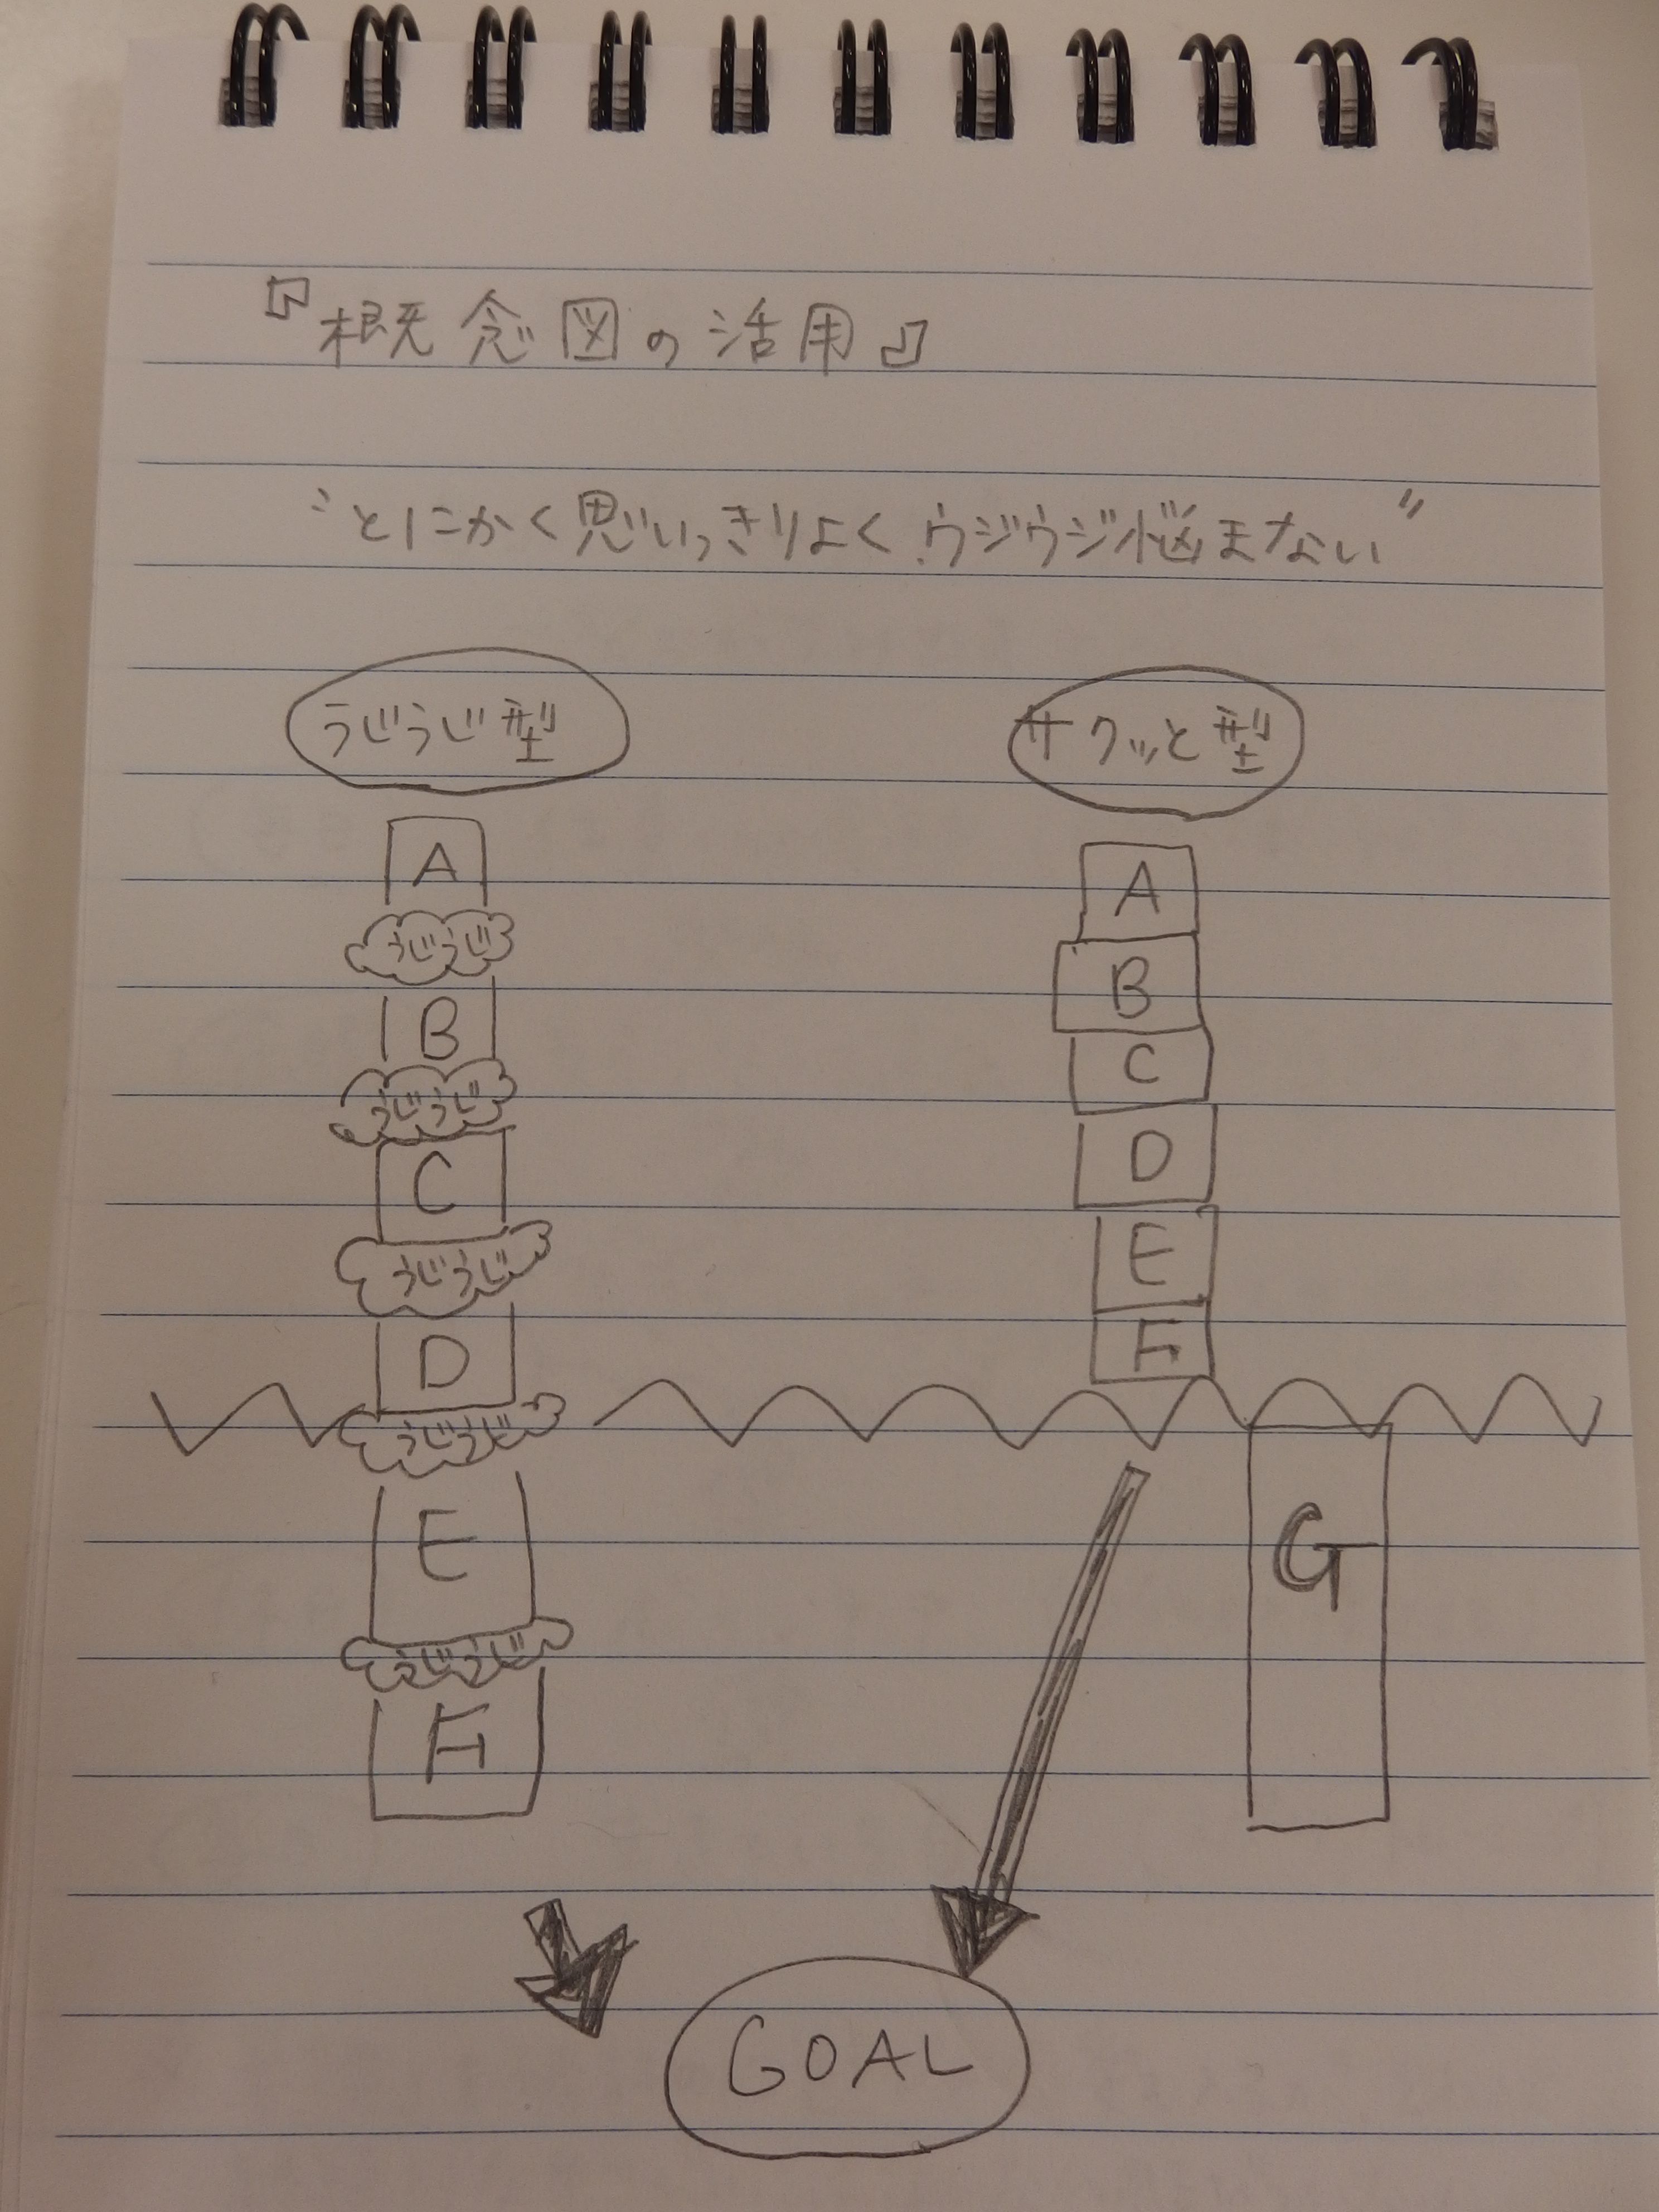 『概念図の活用』
"とにかく思いっきりよく、ウジウジ悩まない"
うじうじ型
A
うじうじ
B
うじうじ
C
うじうじ
D
うじうじ
E
うじうじ
F
サクッと型
A
B
C
D
E
F
G
GOAL